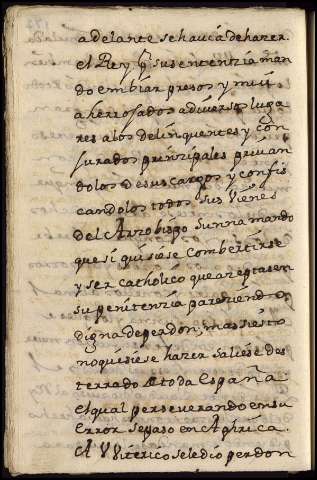 adelante se hauia de hazer.
el Rey q̃ su sentenzia man
do embiar presos y mui
aherrojados a diversos luga
res a los delinquentes y con
jurados prinzipales priuan
dolos de sus cargos y confis
candolos todos sus vienes
del Arzobispo Sunna mando
que si quisiese combertirse
y ser catholico que azeptasen
su penitenzia pareziendo
digna de perdon, mas si esto
no quisiese hazer saliese des
terrado de toda España
el qual perseverando en su
error se paso en Aphrica.
A Viterico se le dio perdon